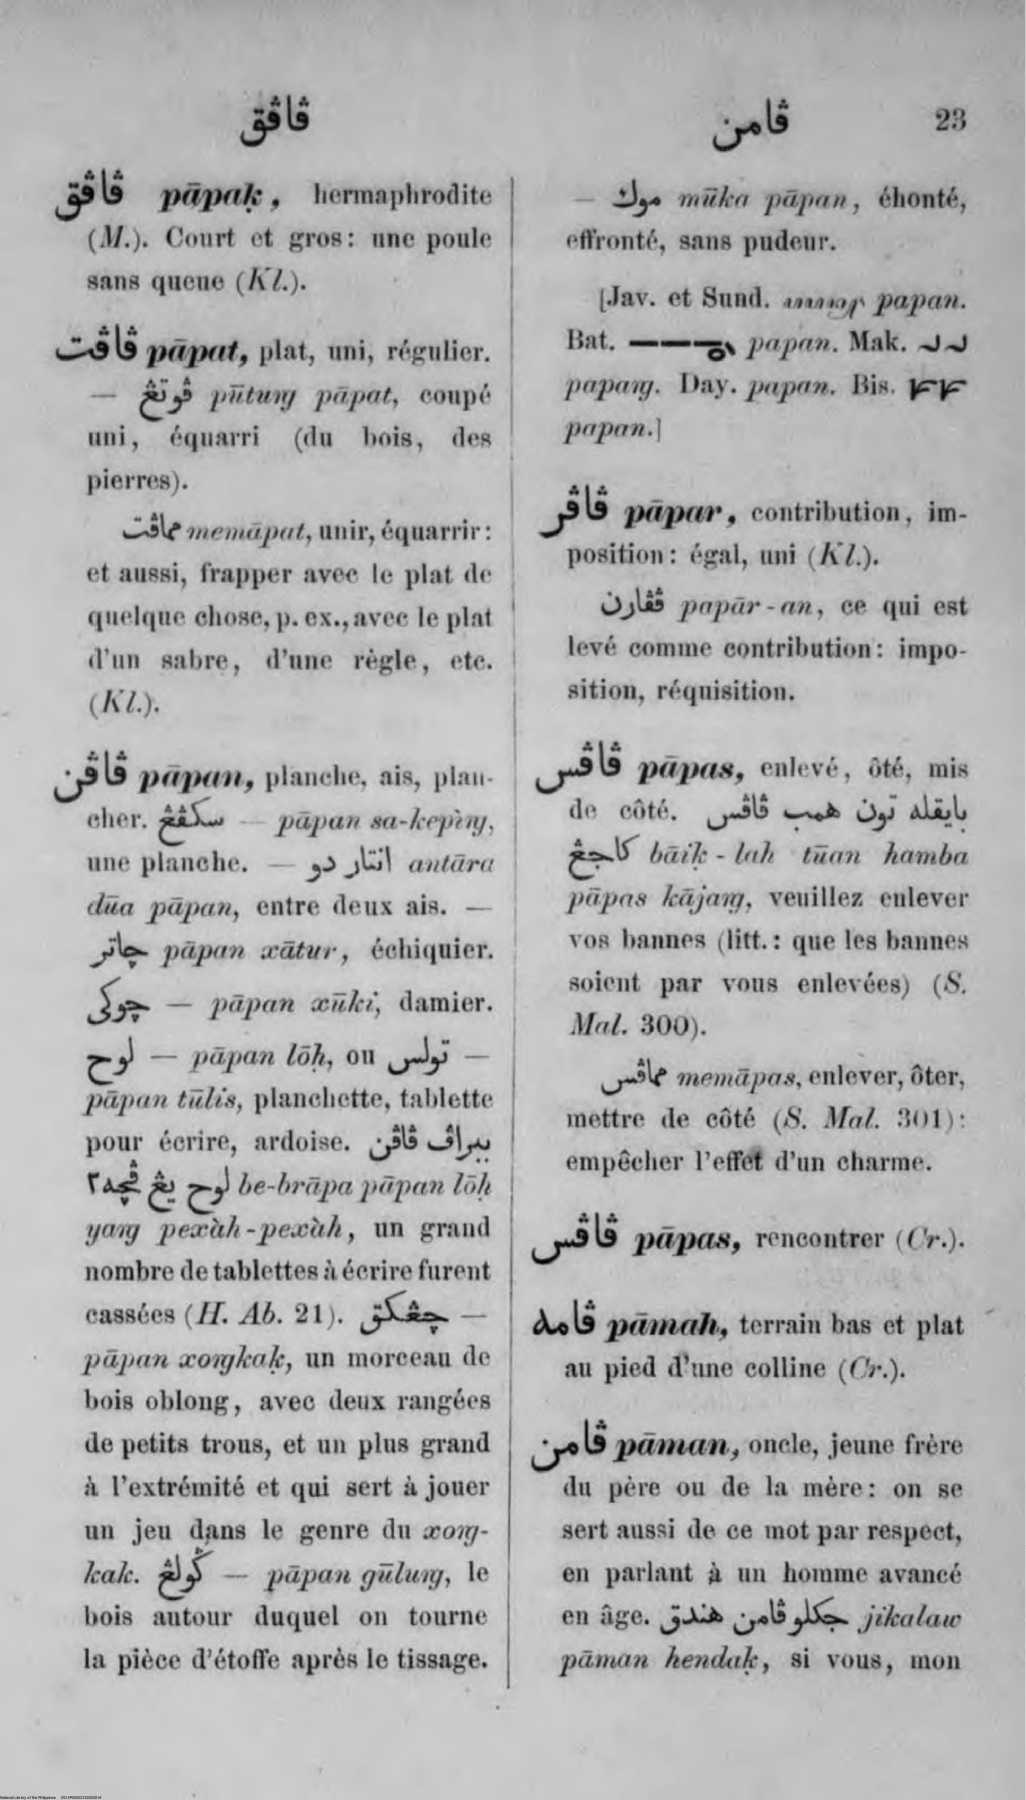 ڤاڤق
ڤامن 23
ڤاڤق pāpaḳ, hermaphrodite
(M.). Court et gros: une poule
sans queue (Kl.).
ڤاڤت pāpat, plat, uni, régulier.
— ڤوتڠ pūtuŋ pāpat, coupé
uni, équarri (du bois, des
pierres).
مماڤت memāpat, unir, équarrir:
et aussi, frapper avec le plat de
quelque chose, p. ex., avec le plat
d'un sabre, d'une règle, etc.
(Kl.).
ڤاڤن pāpan, planche, ais, plan-
cher. سكڤڠ — pāpan sa-kepìŋ,
une planche. — انتار دو antāra
dūa pāpan, entre deux ais. —
چاتر pāpan xātur, échiquier.
چوكي — pāpan xūki, damier.
لوح — pāpan lōḥ, ou تولس —
pāpan tūlis, planchette, tablette
pour écrire, ardoise. ببراڤ ڤاڤن
لوح يڠ ڤچه٢ be-brāpa pāpan lōḥ
yaŋ pexàh-pexàh, un grand
nombre de tablettes à écrire furent
cassées (H. Ab. 21). چڠكق —
pāpan xoŋkaḳ, un morceau de
bois oblong, avec deux rangées
de petits trous, et un plus grand
à l'extrémité et qui sert à jouer
un jeu dans le genre du xoŋ-
kak. ݢولڠ — pāpan gūluŋ, le
bois autour duquel on tourne
la pièce d'étoffe après le tissage.
— موك mūka pāpan, éhonté,
effronté, sans pudeur.
[Jav. et Sund. papan.
Bat. papan. Mak.
papaŋ. Day. papan. Bis.
papan.]
ڤاڤر pāpar, contribution, im-
position: égal, uni (Kl.).
ڤڤارن papār-an, ce qui est
levé comme contribution: impo-
sition, réquisition.
ڤاڤس pāpas, enlevé, ôté, mis
de côté. بايقله تون همب ڤاڤس
كاجڠ bāiḳ-lah tūan hamba
pāpas kājaŋ, veuillez enlever
vos bannes (litt.: que les bannes
soient par vous enlevées) (S.
Mal. 300).
مماڤس memāpas, enlever, ôter,
mettre de côté (S. Mal. 301):
empêcher l'effet d'un charme.
ڤاڤس pāpas, rencontrer (Cr.).
ڤامه pāmah, terrain bas et plat
au pied d'une colline (Cr.).
ڤامن pāman, oncle, jeune frère
du père ou de la mère: on se
sert aussi de ce mot par respect,
en parlant à un homme avancé
en âge. جكلو ڤامن هندق jikalaw
pāman hendaḳ, si vous, mon